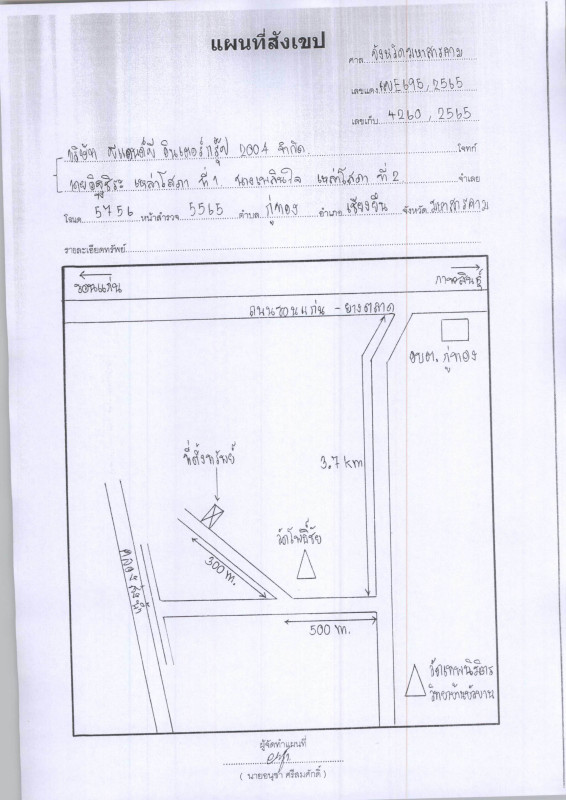 แผนที่สังเขป
ศาล จังหวัดมหาสารคาม
เลขแดง ผบE695, 2565
เลขเก็บ 4260, 2565
บริษัท พีแอนด์พี อินเตอร์กรุ๊ป 2004 จำกัด โจทก์
เหล่าโสภา ที่ 1 นางเพลินใจ เหล่าโสภา ที่ 2 จำเลย
โฉนด 5756 หน้าสำรวจ 5565 ตำบล กู่ทอง อำเภอ เชียงยืน จังหวัด มหาสารคาม
รายละเอียดทรัพย์
ขอนแก่น
กาฬสินธุ์
ถนนขอนแก่น - ยางตลาด
อบต. กู่ทอง
ที่ตั้งทรัพย์
3.7 km
วัดโพธิ์ชัย
300 m.
คลองส่งน้ำ
500 m.
วัดเทพนิมิตร
ผู้จัดทำแผนที่
( นายอนุชา ศรีสมศักดิ์ )